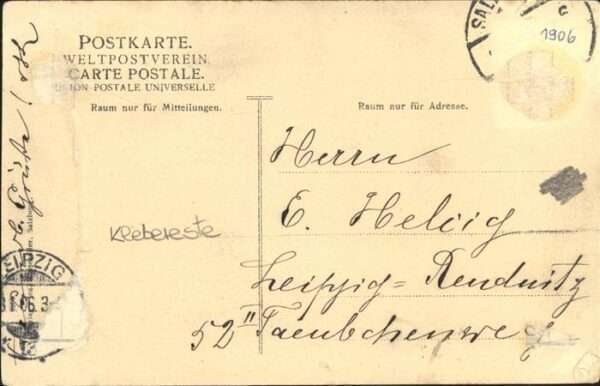 POSTKARTE.
WELTPOSTVEREIN
CARTE POSTALE.
UNION POSTALE UNIVERSELLE
Raum nur für Mitteilungen.
Raum nur für Adresse.
1906
Herrn
E. Helbig
Leipzig = Reudnitz
52 II Taeubchenweg
Klebereste
LEIPZIG
Grüße